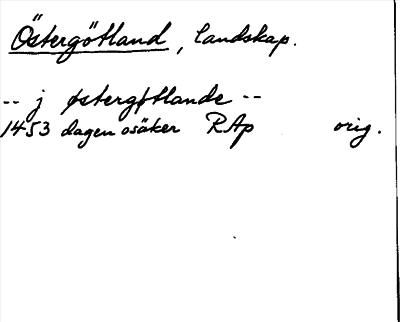 Östergötland, landskap.
-- j østergøtlande --
1453 dagen osäker RAp orig.